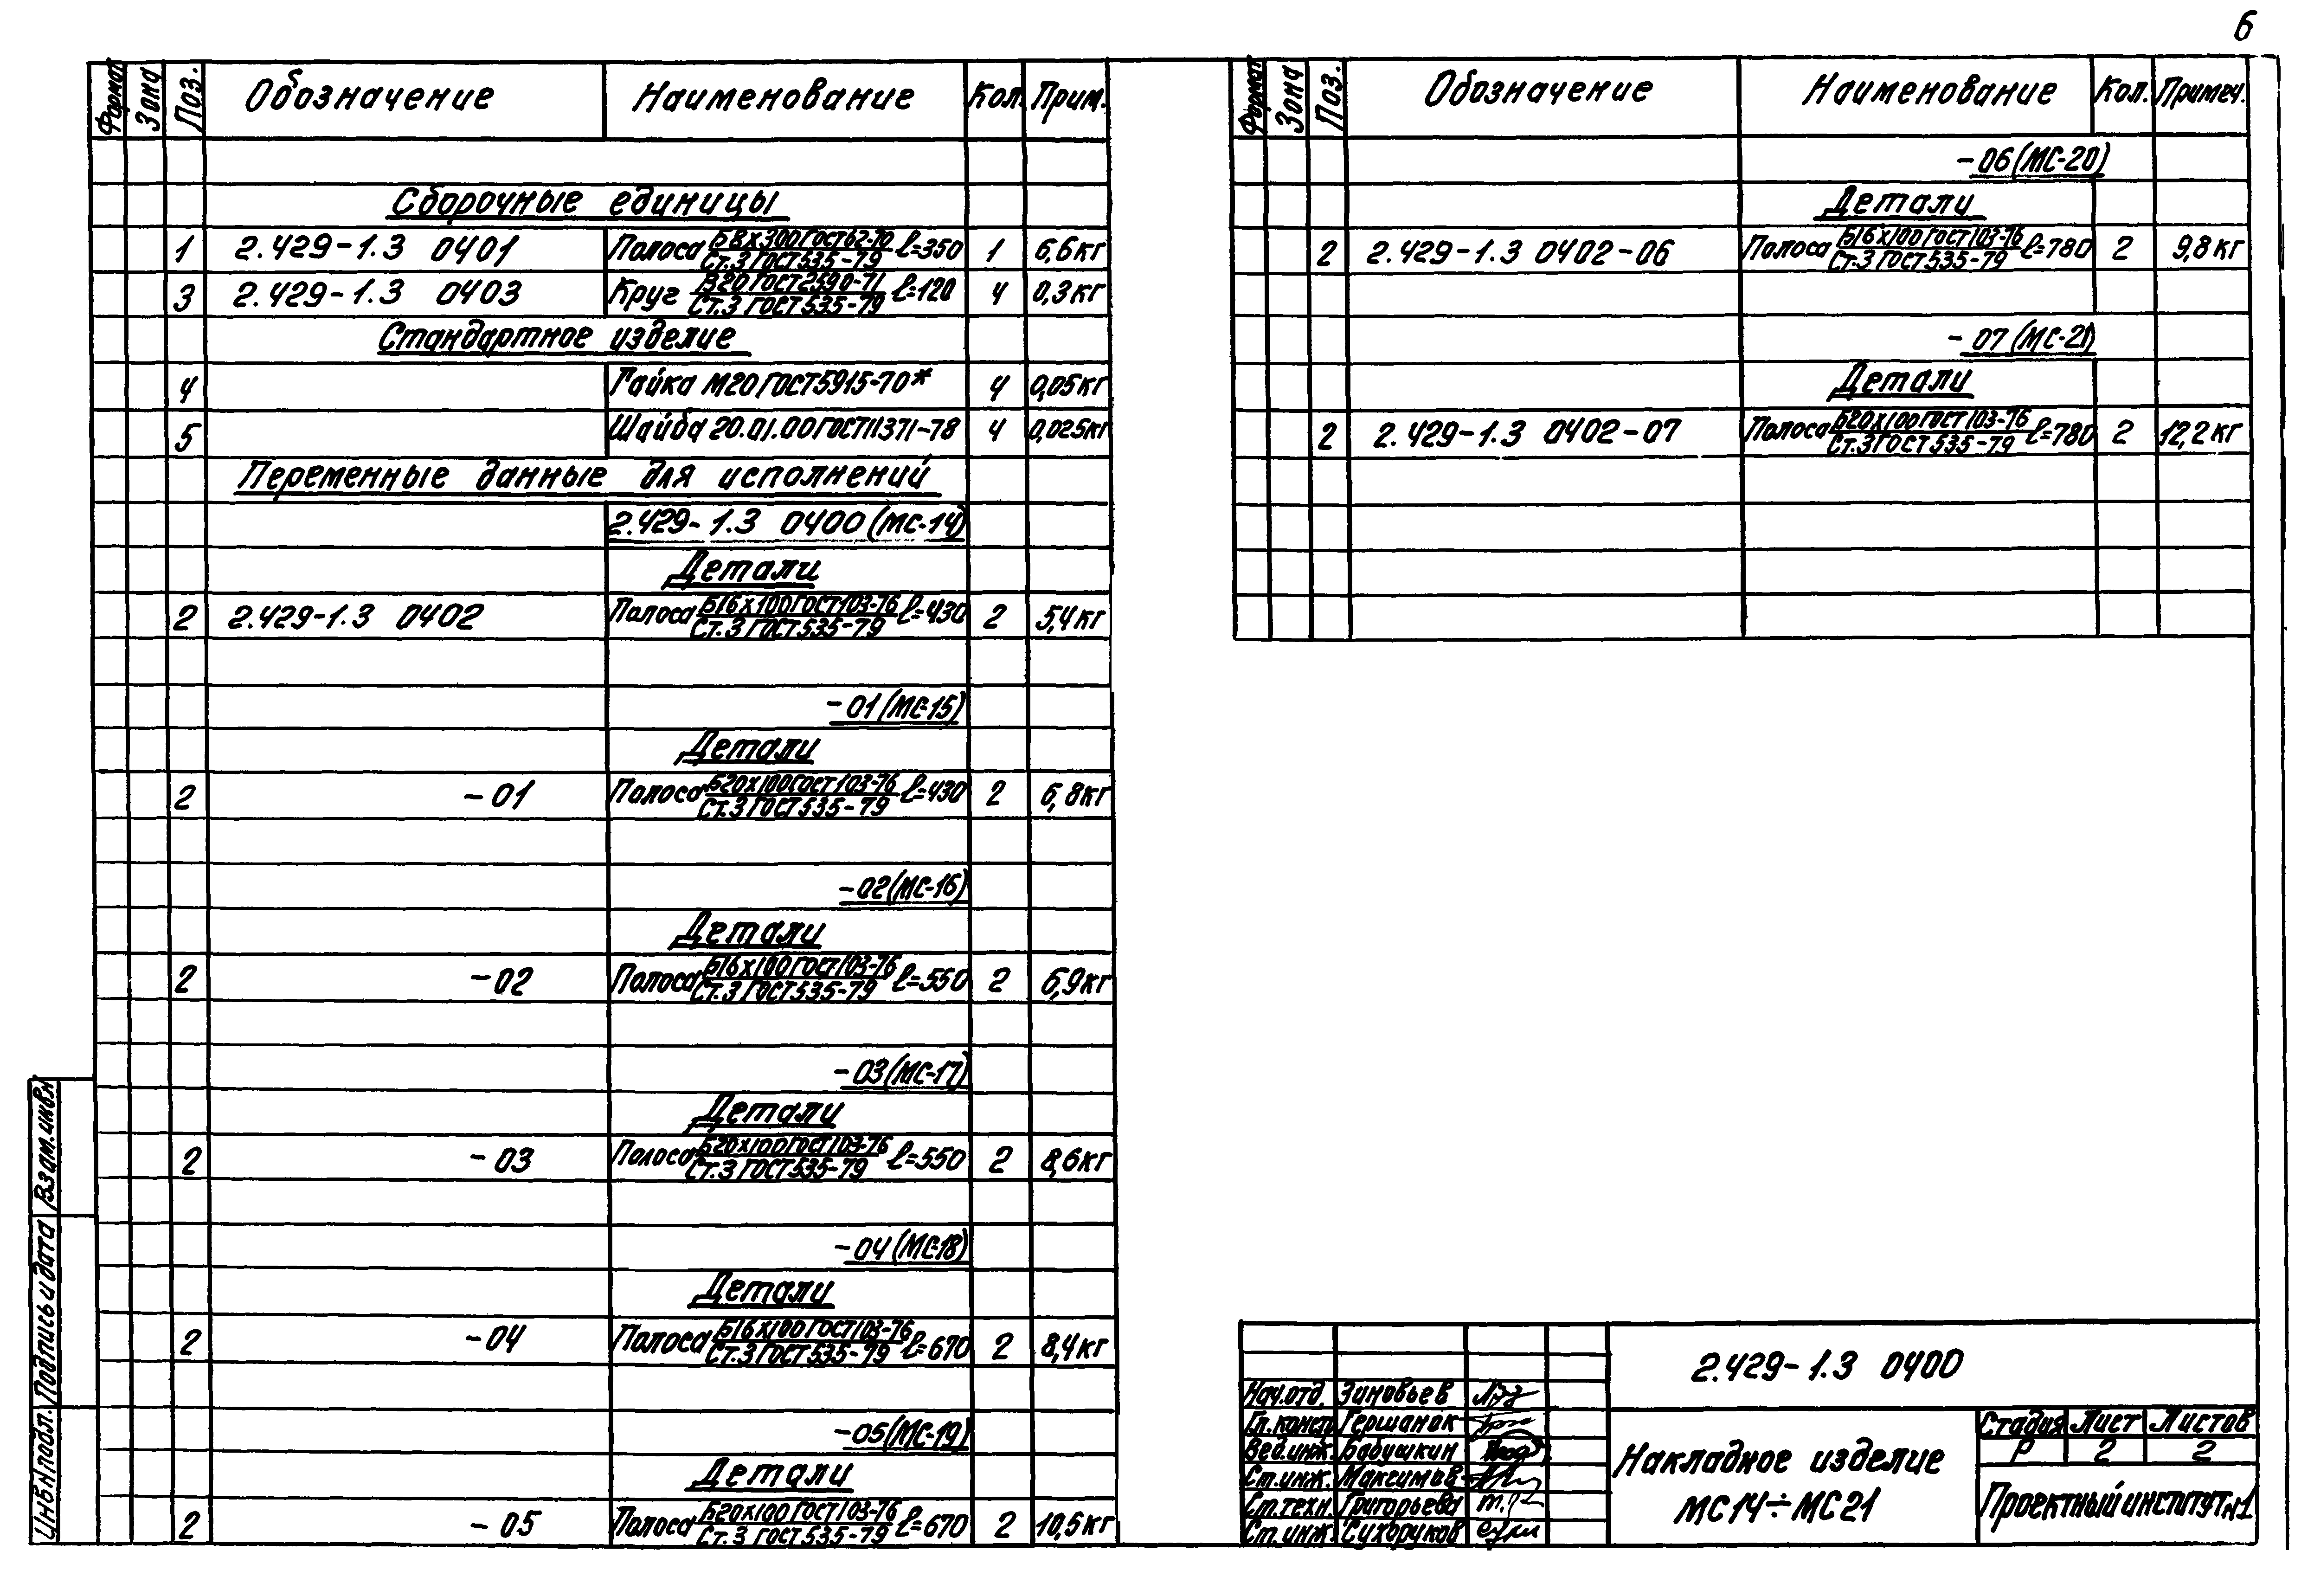 6
Формат Зона Поз. Обозначение Наименование Кол. Прим.
Сборочные единицы
1 2.429-1.3 0401 Полоса Б8х300 ГОСТ 82-70 / Ст.3 ГОСТ 535-79 ℓ=350 1 6,6кг
3 2.429-1.3 0403 Круг В20 ГОСТ 2590-71 / Ст.3 ГОСТ 535-79 ℓ=120 4 0,3кг
Стандартное изделие
4 Гайка М20 ГОСТ 5915-70* 4 0,05кг
5 Шайба 20.01.00 ГОСТ 11371-78 4 0,025кг
Переменные данные для исполнений
2.429-1.3 0400 (МС-14)
Детали
2 2.429-1.3 0402 Полоса Б16х100 ГОСТ 103-76 / Ст.3 ГОСТ 535-79 ℓ=430 2 5,4кг
-01 (МС-15)
Детали
2 -01 Полоса Б20х100 ГОСТ 103-76 / Ст.3 ГОСТ 535-79 ℓ=430 2 6,8кг
-02 (МС-16)
Детали
2 -02 Полоса Б16х100 ГОСТ 103-76 / Ст.3 ГОСТ 535-79 ℓ=550 2 6,9кг
-03 (МС-17)
Детали
2 -03 Полоса Б20х100 ГОСТ 103-76 / Ст.3 ГОСТ 535-79 ℓ=550 2 8,6кг
-04 (МС-18)
Детали
2 -04 Полоса Б16х100 ГОСТ 103-76 / Ст.3 ГОСТ 535-79 ℓ=670 2 8,4кг
-05 (МС-19)
Детали
2 -05 Полоса Б20х100 ГОСТ 103-76 / Ст.3 ГОСТ 535-79 ℓ=670 2 10,5кг
Формат Зона Поз. Обозначение Наименование Кол. Примеч.
-06 (МС-20)
Детали
2 2.429-1.3 0402-06 Полоса Б16х100 ГОСТ 103-76 / Ст.3 ГОСТ 535-79 ℓ=780 2 9,8кг
-07 (МС-21)
Детали
2 2.429-1.3 0402-07 Полоса Б20х100 ГОСТ 103-76 / Ст.3 ГОСТ 535-79 ℓ=780 2 12,2кг
Инв.N подл. Подпись и дата Взам.инв.N
2.429-1.3 0400
Нач.отд. Зиновьев
Гл.конст. Гершанок
Вед.инж. Бабушкин
Ст.инж. Максимов
Ст.техн. Григорьева
Ст.инж. Сухоруков
Накладное изделие
МС14÷МС21
Стадия Лист Листов
Р 2 2
Проектный институт №1